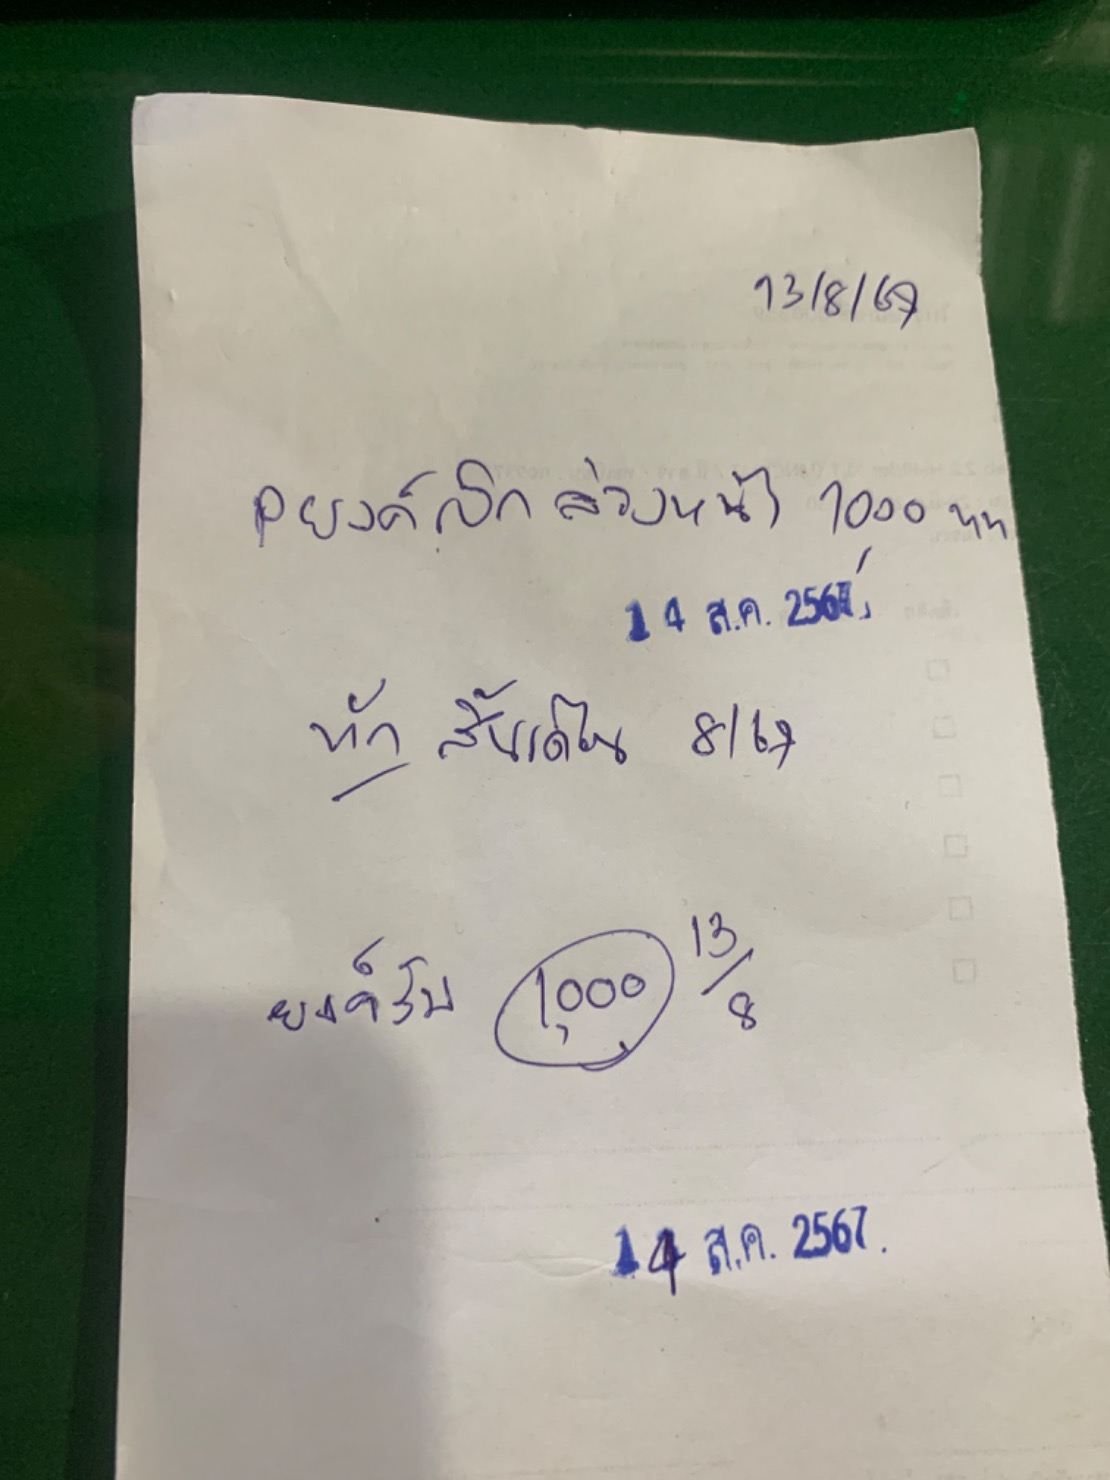 13/8/67
ยงค์เบิก ล่วงหน้า 1000 บาท
14 ส.ค. 2567
หัก สิ้นเดือน 8/67
ยงค์รับ 1,000 13/8
14 ส.ค. 2567